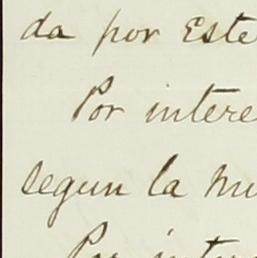 da por este
Por intere
segun la mi
Por inter